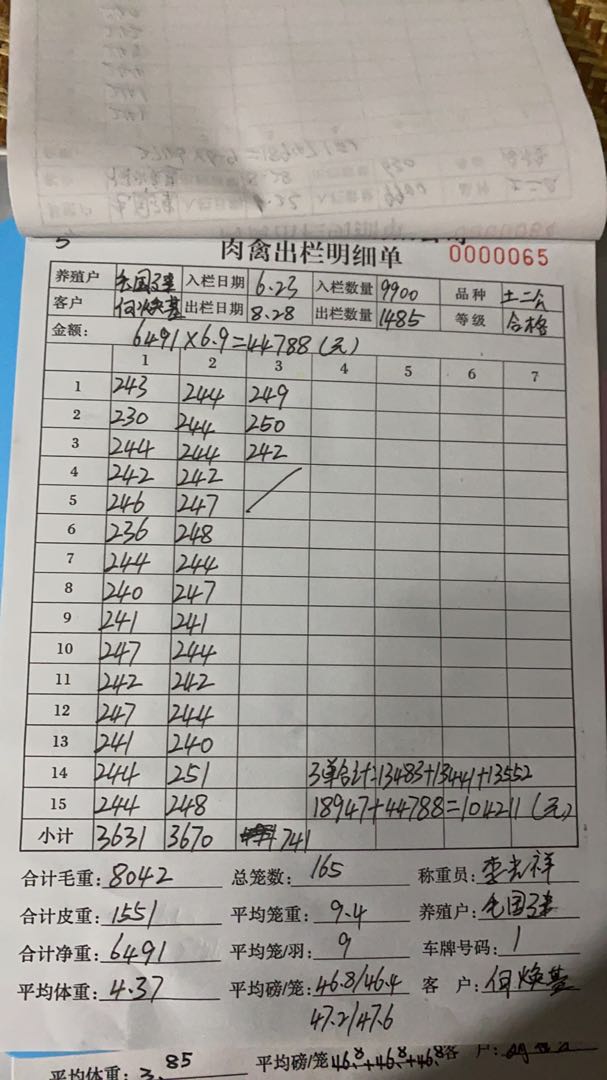 5
肉禽出栏明细单 0000065
养殖户 入栏日期 6.23 入栏数量 9900 品种 土二
客户 何焕基 出栏日期 8.28 出栏数量 1485 等级 合格
金额: 6491×6.9=44788(元)
1 2 3 4 5 6 7
1 243 244 249
2 230 244 250
3 244 244 242
4 242 242
5 246 247
6 236 248
7 244 244
8 240 247
9 241 241
10 247 244
11 242 242
12 247 244
13 241 240
14 244 251 3单合计:13483+13441+13552
15 244 248 18947+44788=104211(元)
小计 3631 3670 741
合计毛重: 8042 总笼数: 165 称重员: 李光祥
合计皮重: 1551 平均笼重: 9.4 养殖户:
合计净重: 6491 平均笼/羽: 9 车牌号码: 1
平均体重: 4.37 平均磅/笼: 46.8/46.4 客 户: 何焕基
47.2/47.6
平均体重: 3.85 平均磅/笼 46.8+46.8+46.8 客 户: